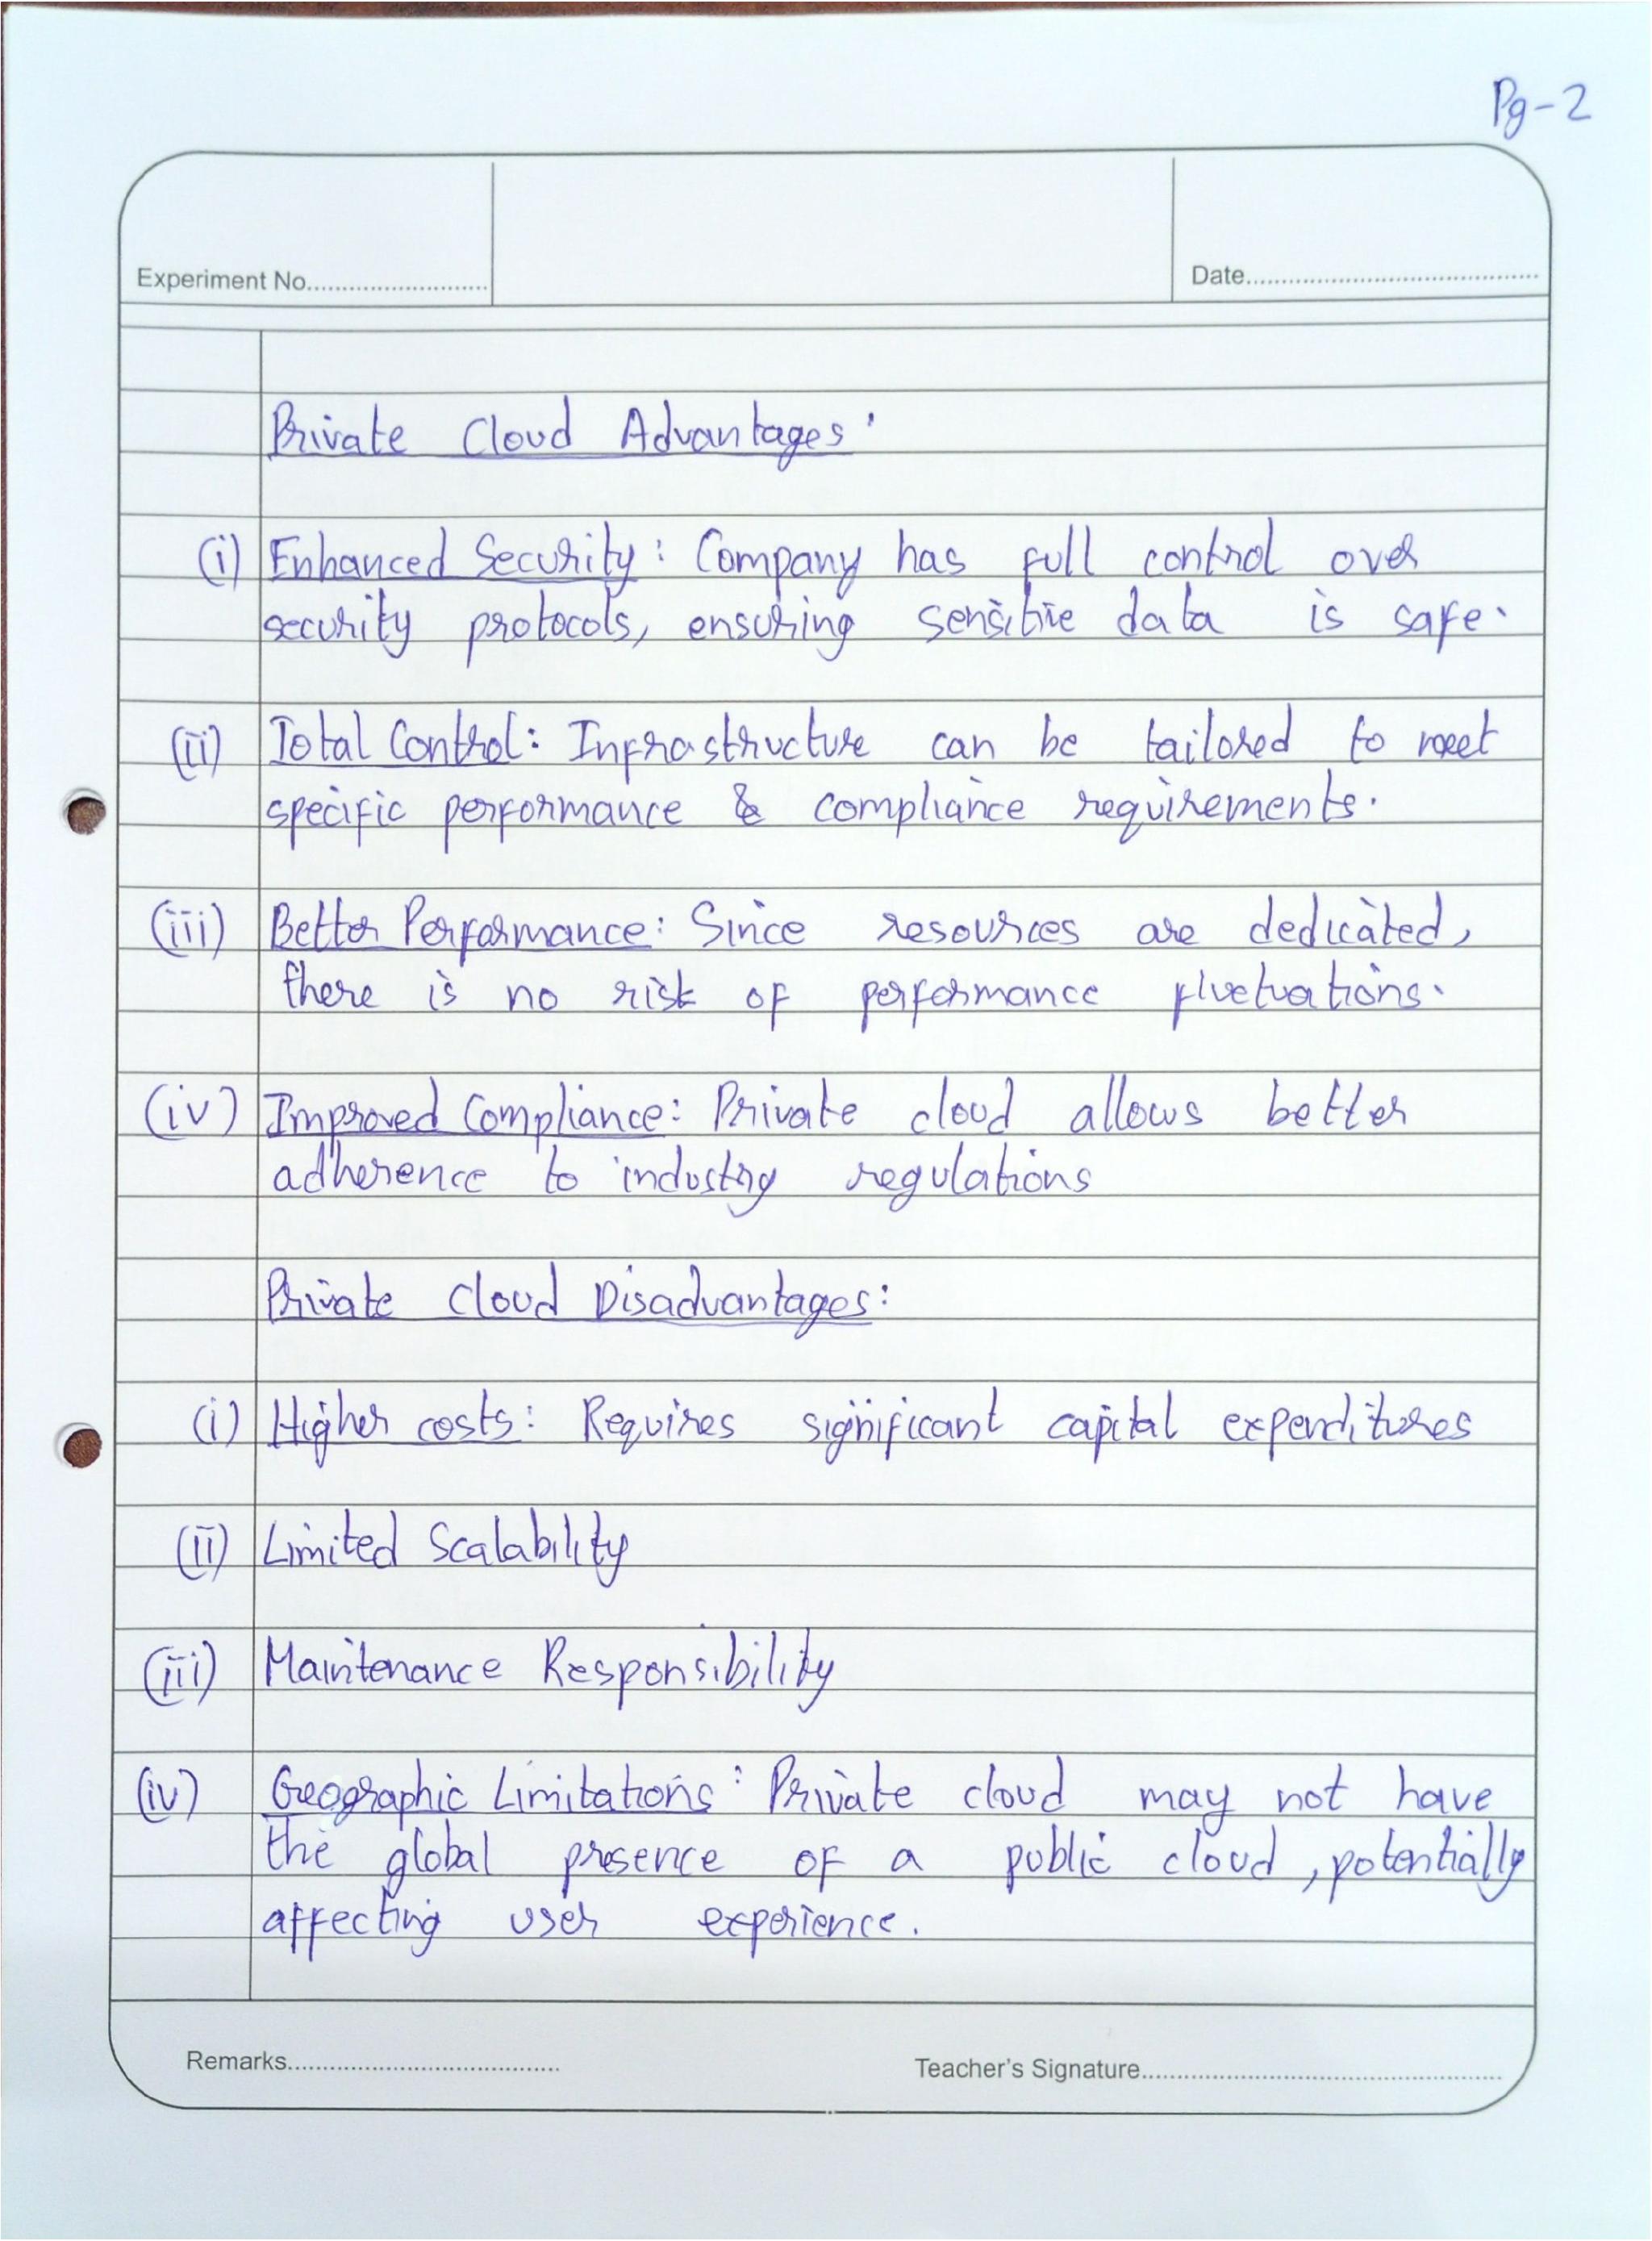 Pg-2
Experiment No.
Date
Private Cloud Advantages:
(i) Enhanced Security: Company has full control over
security protocols, ensuring sensitive data is safe.
(ii) Total Control: Infrastructure can be tailored to meet
specific performance & compliance requirements.
(iii) Better Performance: Since resources are dedicated,
there is no risk of performance fluctuations.
(iv) Improved Compliance: Private cloud allows better
adherence to industry regulations
Private Cloud Disadvantages:
(i) Higher costs: Requires significant capital expenditures
(ii) Limited Scalability
(iii) Maintenance Responsibility
(iv) Geographic Limitations: Private cloud may not have
the global presence of a public cloud, potentially
affecting user experience.
Remarks
Teacher's Signature